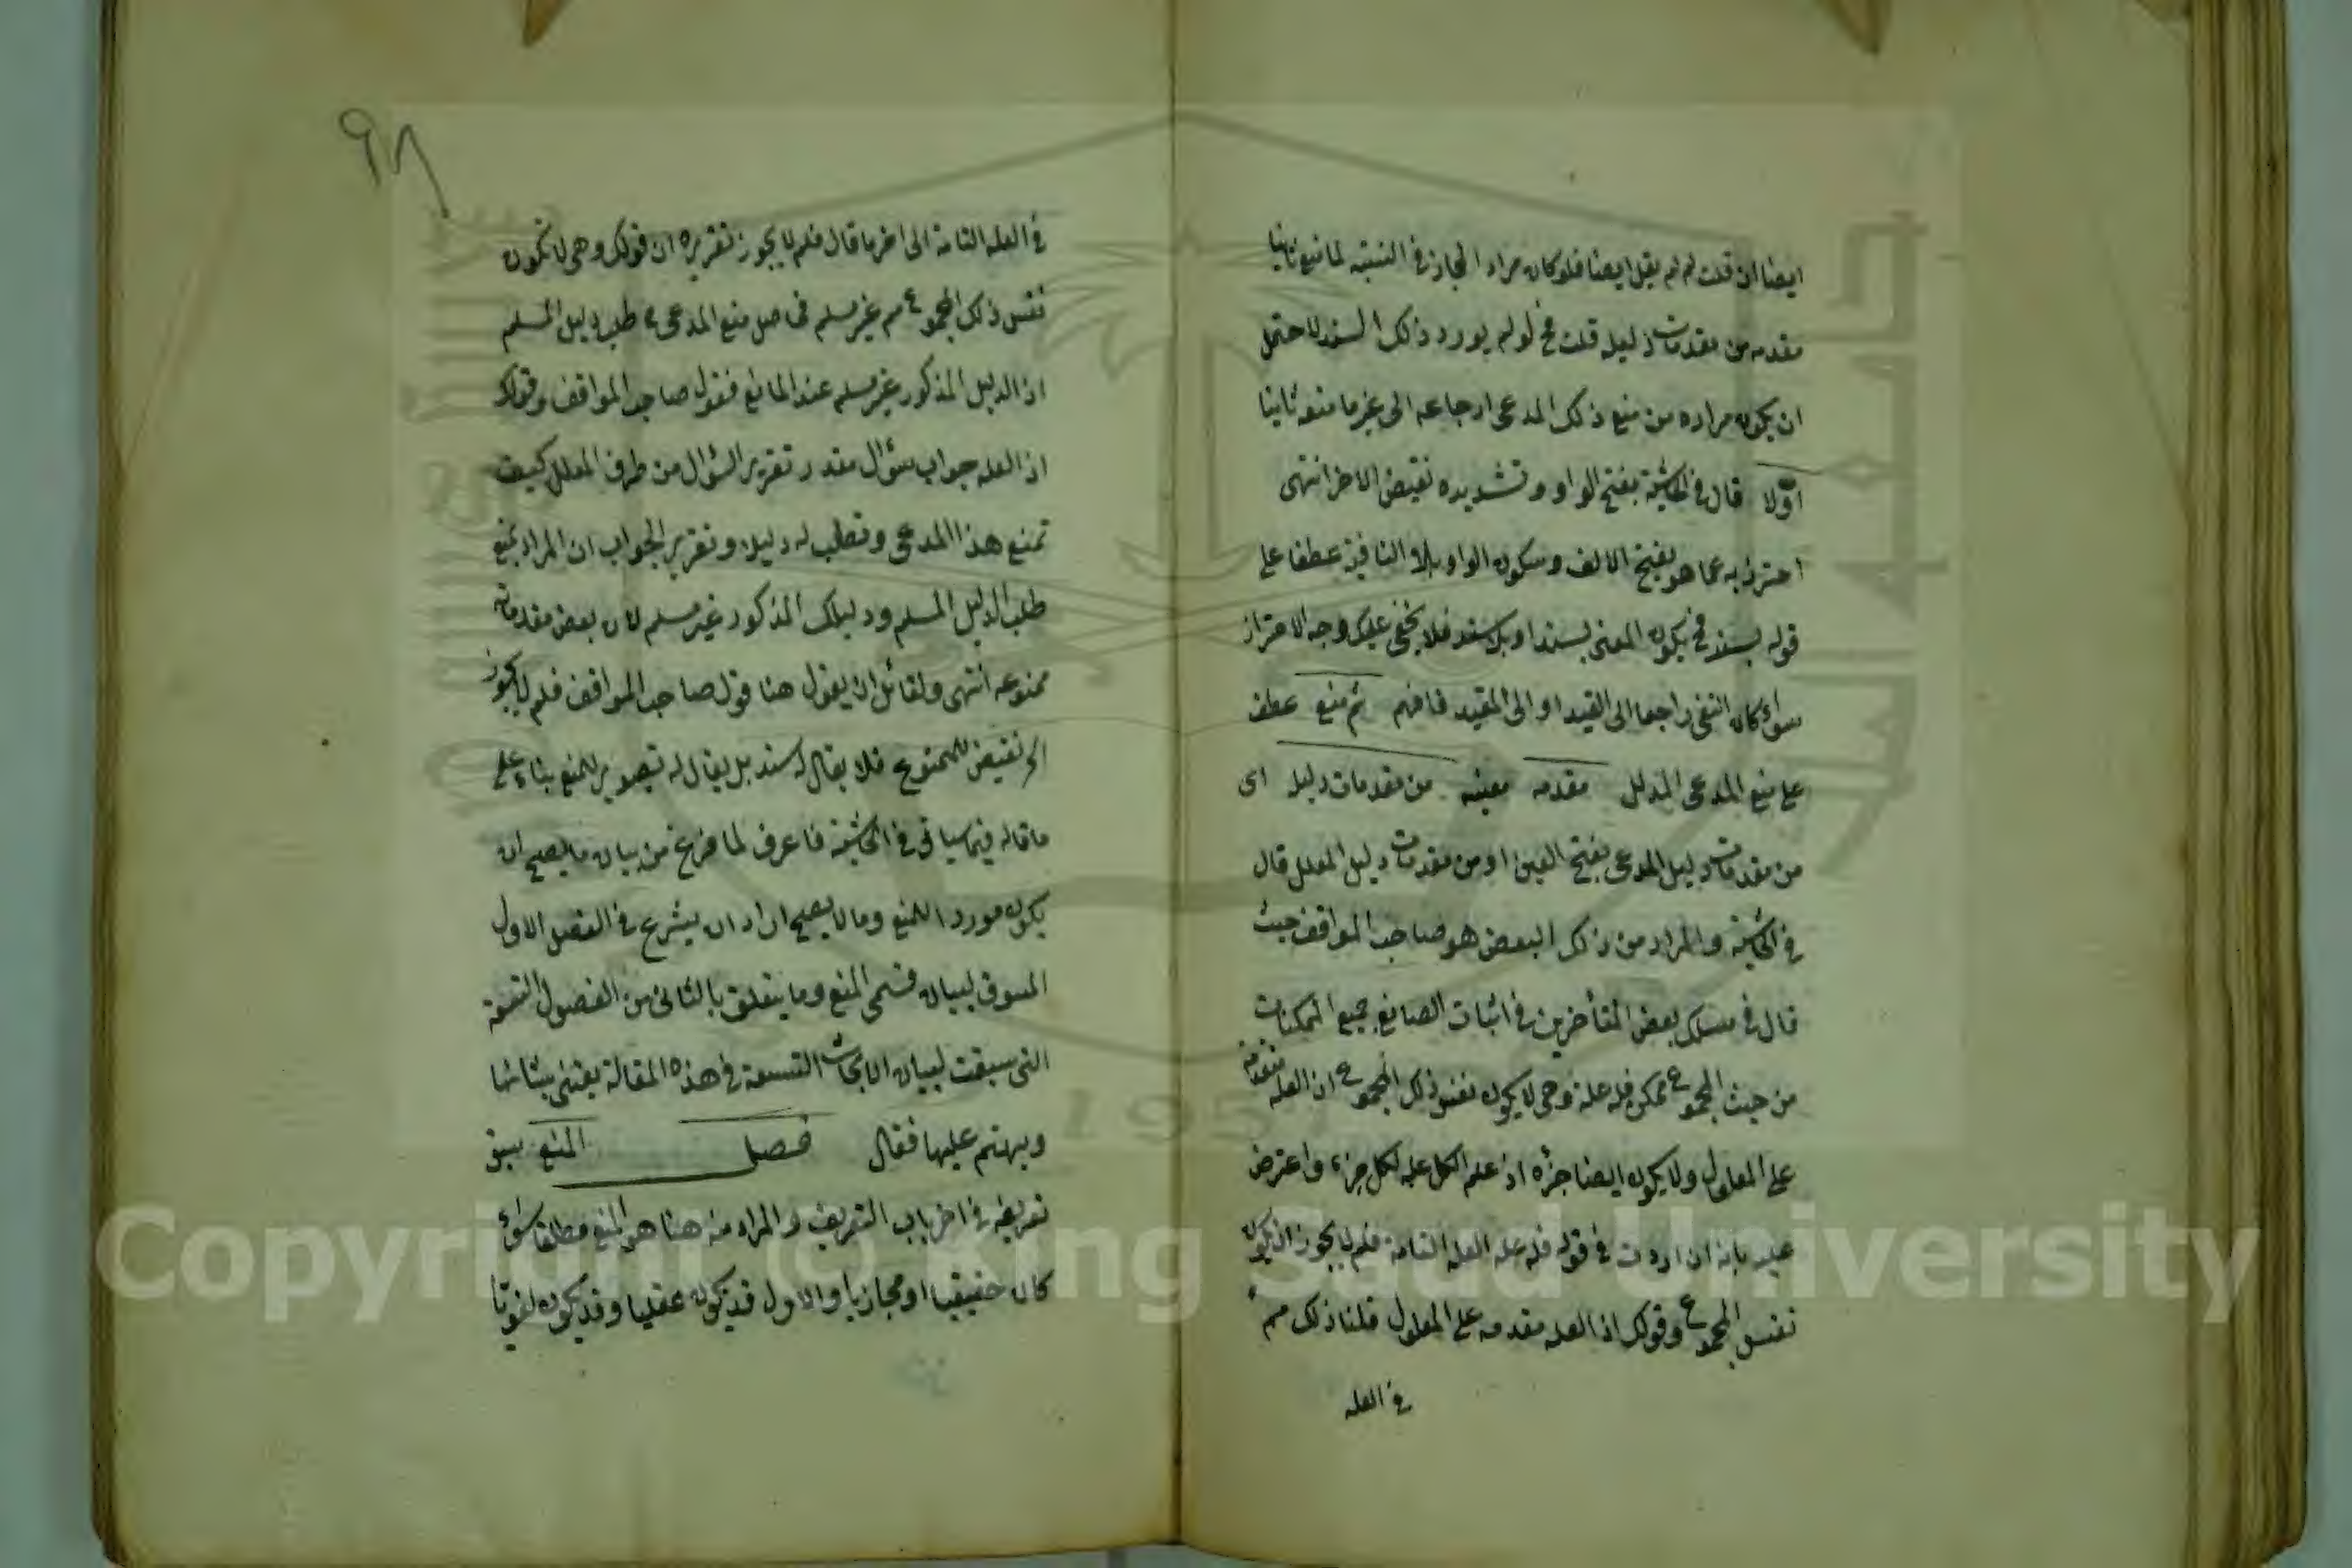 ايضا ان قلت لم لم يقل ايضا فلو كان مراد المجاز في النسبة لما منع ثانيا
مقدمه من مقدمات دليله قلت فح لو لم يورد ذلك السند لاحتمل
ان يكون مراده من منع ذلك المدعى ارجاعه الى غير ما منعه ثانيا
اوّلا قال في الحاشية بفتح الواو وتشديده نقيض الاخر انتهى
احترز به عما هو بفتح الالف وسكون الواو بلا النافية عطفا على
قوله بسند فح يكون المعنى بسند او بلا سند فلا يخفى عليك وجه الاحتراز
سواء كان النفى راجعا الى القيد او الى المقيد فافهم ثم منع عطف
على منع المدعى المدلل مقدمه معينه من مقدمات دليله اى
من مقدمات دليل المدعى بفتح العين او من مقدمات دليل المعلل قال
في الحاشية والمراد من ذلك البعض هو صاحب المواقف حيث
قال في مسلك بعض المتأخرين في اثبات الصانع جميع الممكنات
من حيث المجموع ممكن فله علة وهى لا يكون نفس ذلك المجموع اذ العله متقدمة
على المعلول ولا يكون ايضا جزؤه اذ علة الكل علة لكل جزء واعترض
عليه بانه ان اردت في قوله فله علة العلة التامة فلم لا يجوز ان يكون
نفس المجموع وقولك اذ العله مقدمه على المعلول قلنا ذلك مم
في العله
٩٨
في العله التامة الى اخر ما قال فلم لا يجوز تقريره ان قولك وهى لا تكون
نفس ذلك المجموع مم غير مسلم فحاصل منع المدعى طلب دليل المسلم
اذ الدليل المذكور غير مسلم عند المانع فنقول صاحب المواقف وقولك
اذ العله جواب سؤال مقدر تقرير السؤال من طرف المعلل كيف
تمنع هذا المدعى وتطلب له دليلا وتقرير الجواب ان المراد بمنع
طلب الدليل المسلم ودليلك المذكور غير مسلم لان بعض مقدماته
ممنوعه انتهى ولقائل ان يقول هنا قول صاحب المواقف فلم لا يجوز
الخ نقيض للممنوع فلا يقال له سند بل يقال له تصوير للمنع بناء على
ما قاله فيما سياتى في الحاشية فاعرف لما فرغ من بيان ما يصح ان
يكون موردا للمنع وما لا يصح اراد ان يشرع في الفصل الاول
المسوق لبيان قسمى المنع وما يتعلق بالثانى من الفصول التسعة
التى سيقت لبيان الابحاث التسعة في هذه المقالة يعتنى بشانها
ويهتم عليها فقال فصل المنع سبق
تعريفه في اخر باب التعريف والمراد منه هنا هو المنع مطلقا سواء
كان حقيقيا او مجازيا والاول قد يكون عقليا وقد يكون لغويا
Copyright © King Saud University
1957